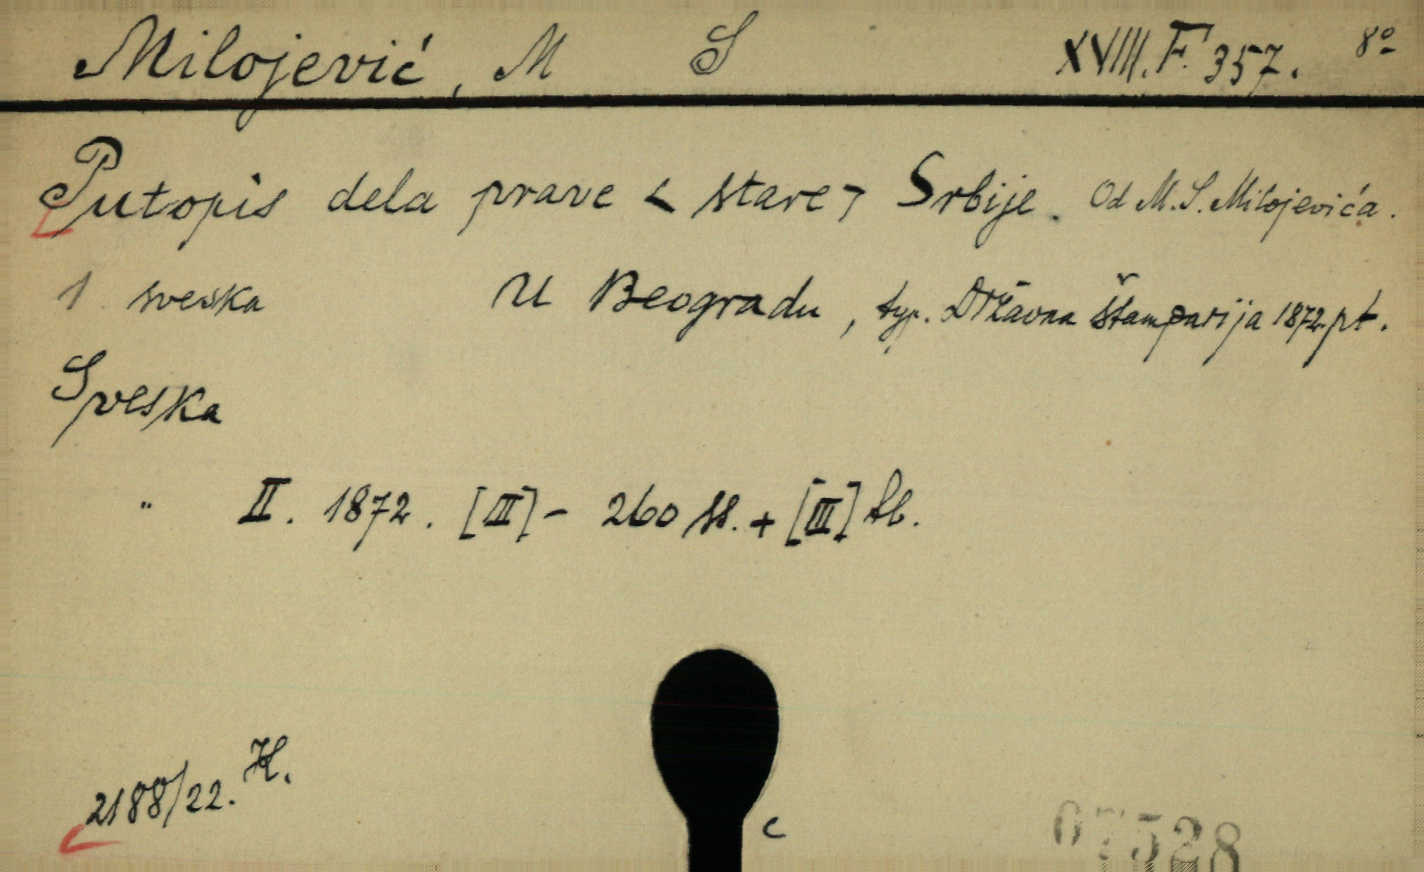 Milojević, M S XVIII. F. 357. 8º
Putopis dela prave < stare > Srbije. Od M. S. Milojevića.
1. sveska U Beogradu, typ. Državna štamparija 1872. pt.
Sveska
" II. 1872. [III] - 260 ss. + [III] sl.
2188/22. H.
c